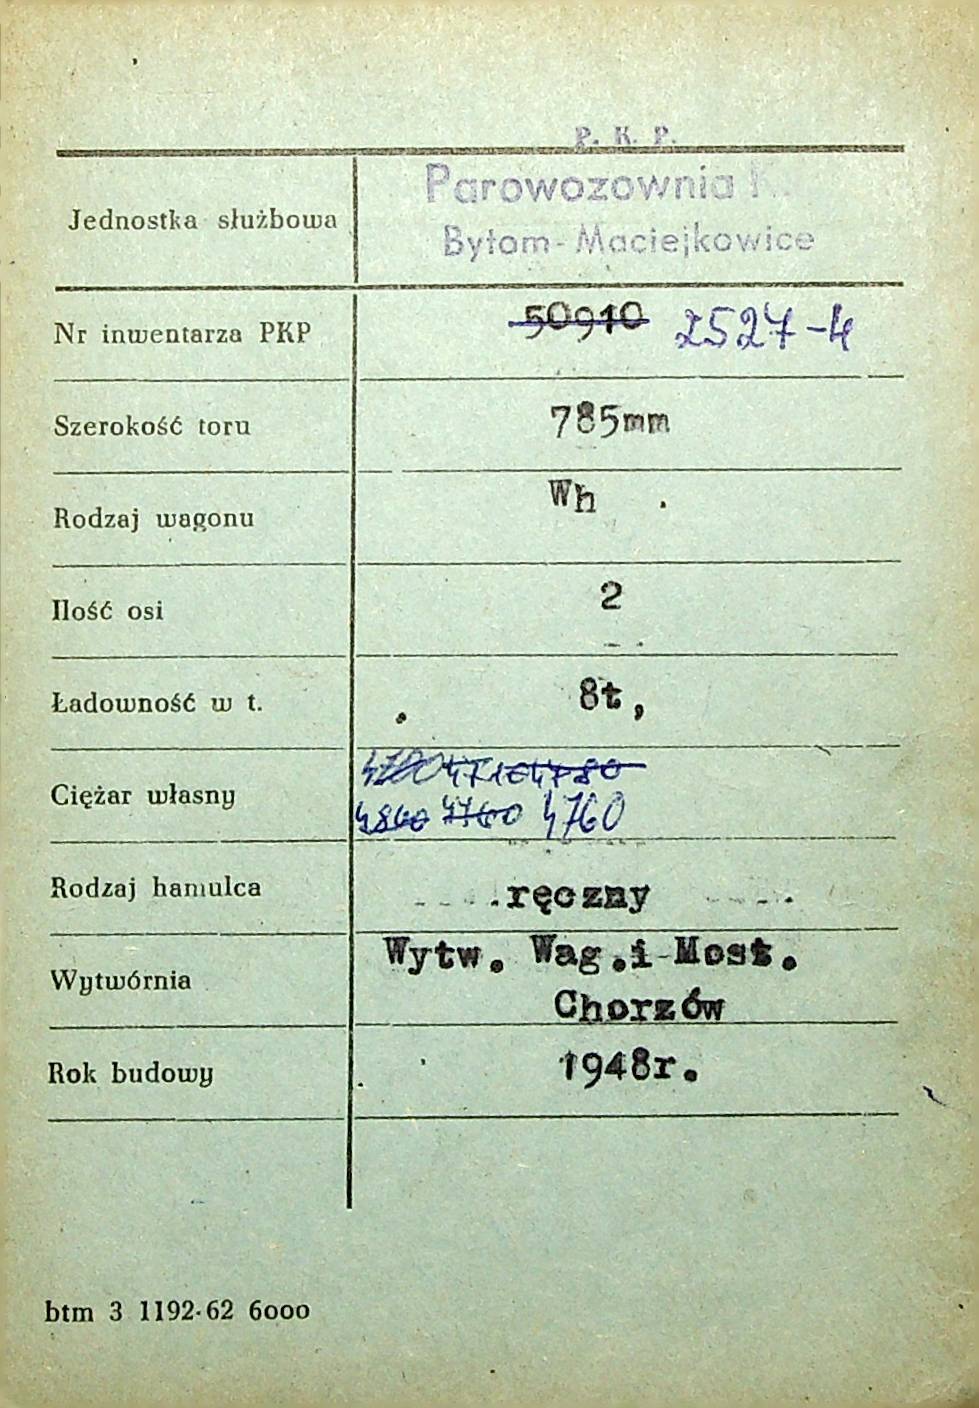 P. K. P.
Parowozownia K
Jednostka służbowa
Bytom-Maciejkowice
Nr inwentarza PKP 50910 2527-4
Szerokość toru 785mm
Rodzaj wagonu Wh
Ilość osi 2
Ładowność w t. 8t,
4780
Ciężar własny
4860 4760 4760
Rodzaj hamulca ręczny
Wytw. Wag.i Most.
Wytwórnia
Chorzów
Rok budowy 1948r.
btm 3 1192-62 6000